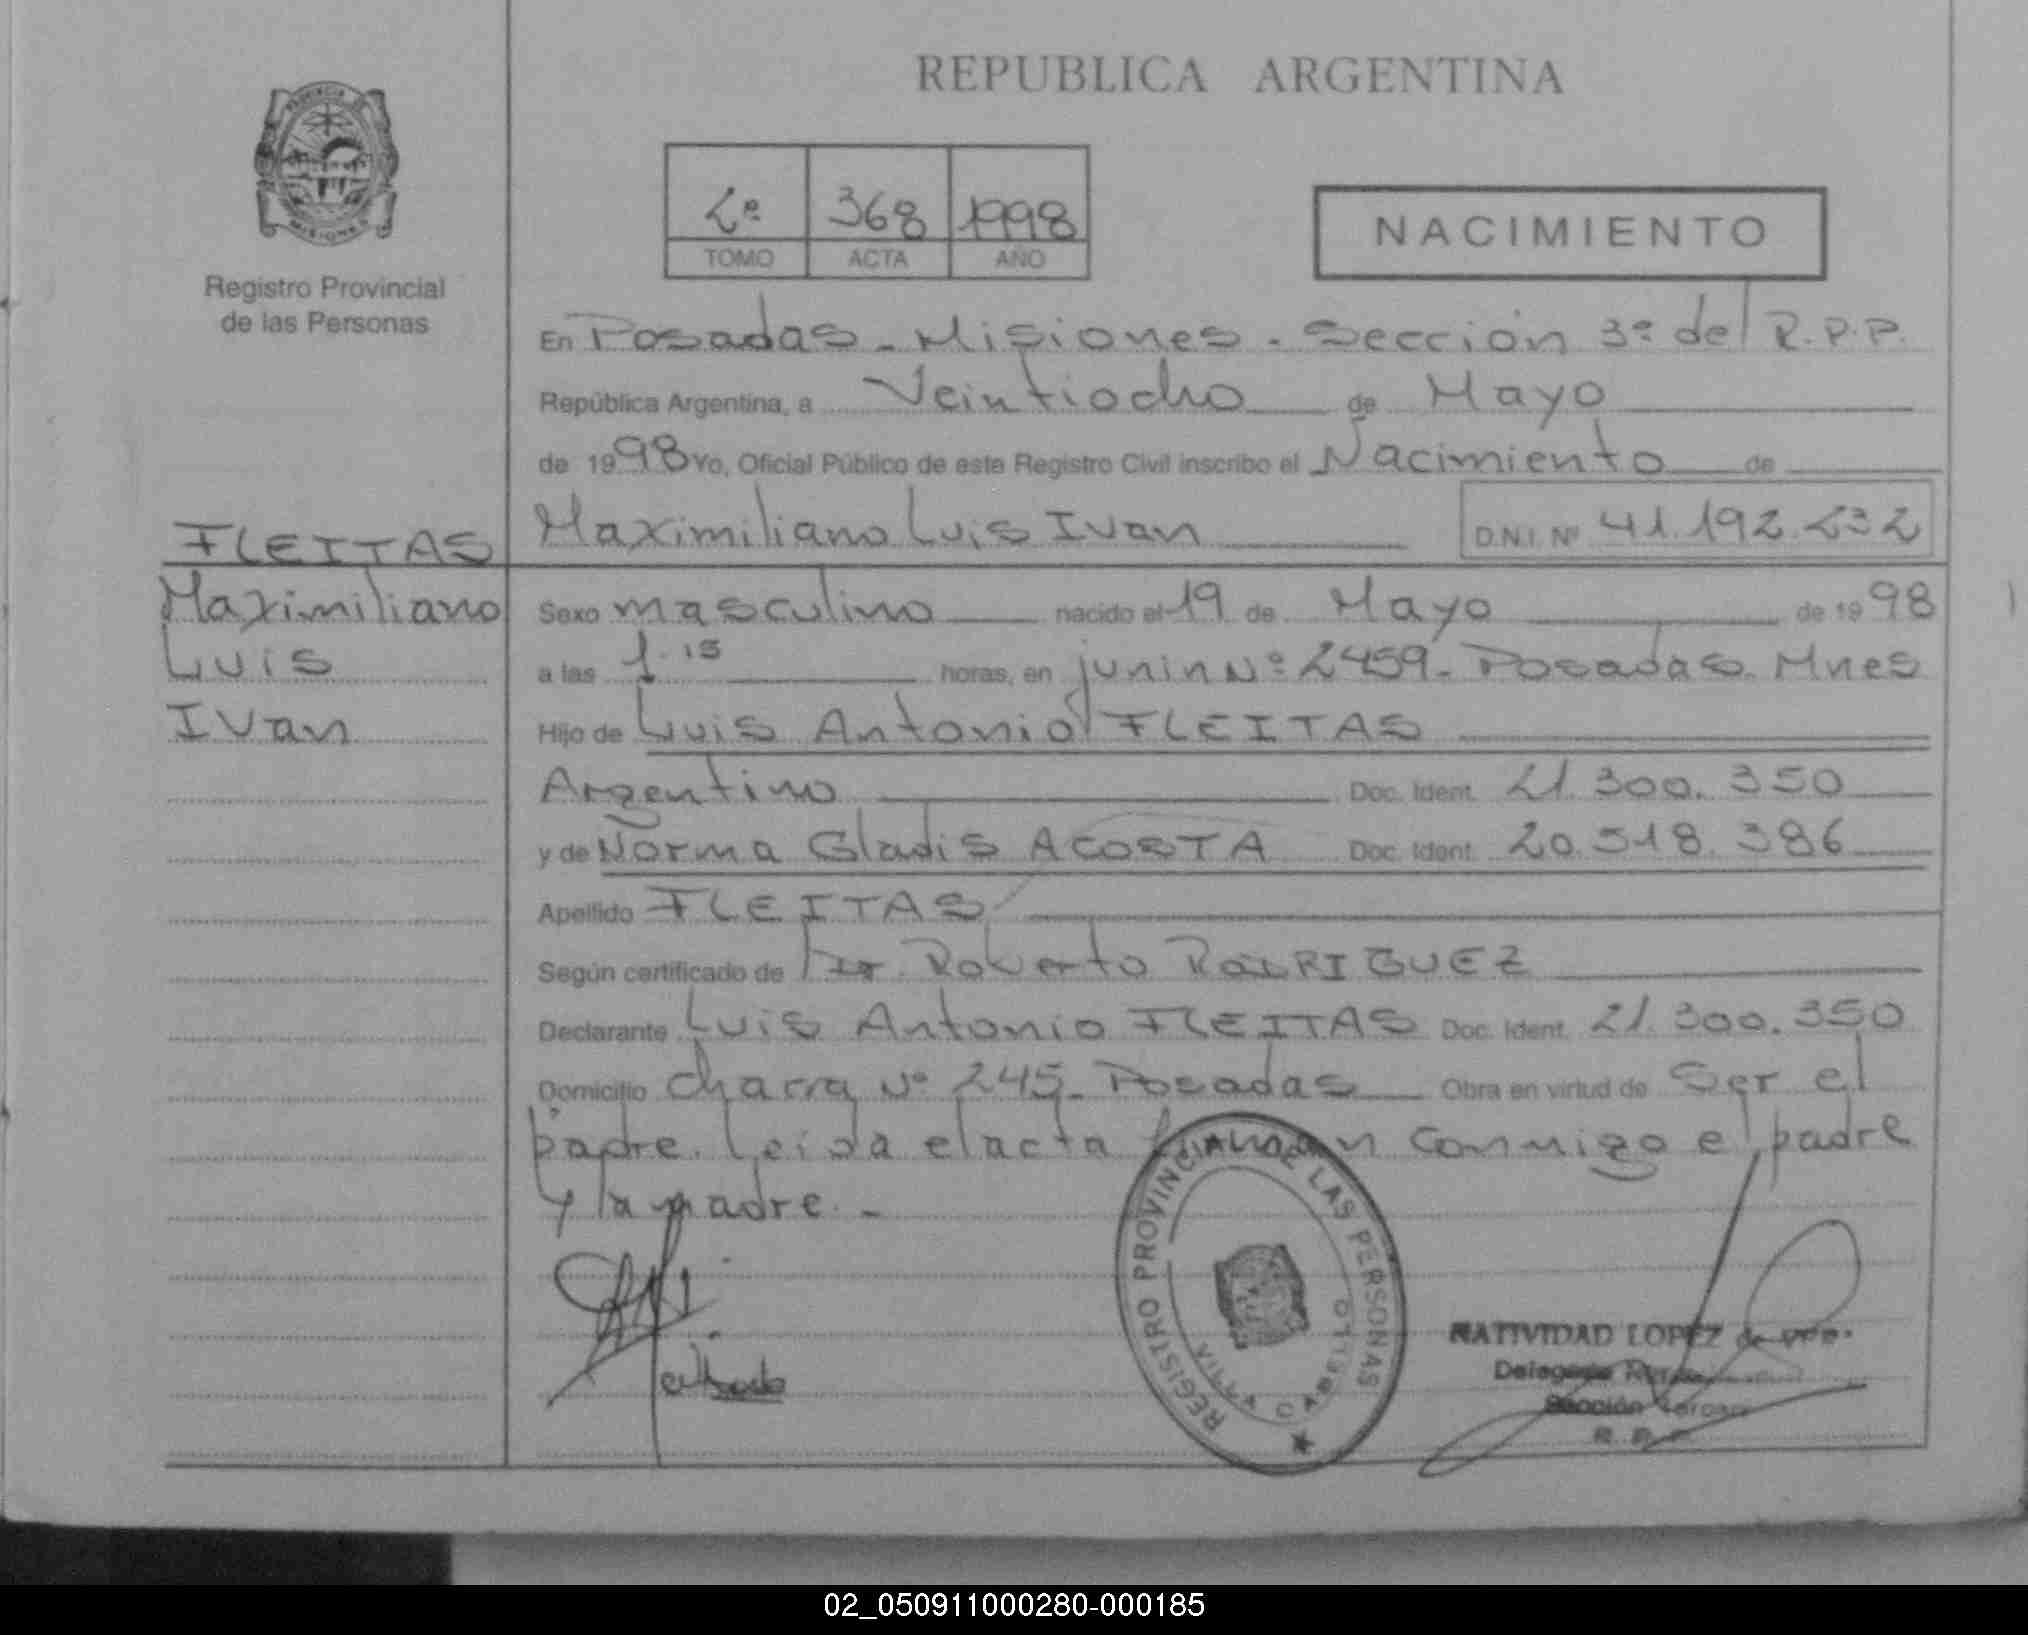 REPUBLICA ARGENTINA
PROVINCIA DE
MISIONES
Registro Provincial
de las Personas
2º 368 1998
TOMO ACTA AÑO
NACIMIENTO
En Posadas - Misiones - Sección 3º del R.P.P.
República Argentina, a Veintiocho de Mayo
de 1998 Yo, Oficial Público de este Registro Civil inscribo el Nacimiento de
FLEITAS
Maximiliano Luis Ivan D.N.I. Nº 41.192.232
Maximiliano
Luis
Ivan
Sexo masculino nacido el 19 de Mayo de 1998
a las 1.15 horas, en junin Nº 2459 - Posadas. Mnes
Hijo de Luis Antonio FLEITAS
Argentino Doc. Ident. 21.300.350
y de Norma Gladis ACOSTA Doc. Ident. 20.518.386
Apellido FLEITAS
Según certificado de Dr. Roberto RODRIGUEZ
Declarante Luis Antonio FLEITAS Doc. Ident. 21.300.350
Domicilio charra Nº 245 - Posadas Obra en virtud de Ser el
padre. Leida el acta firman conmigo el padre
y la madre. -
REGISTRO PROVINCIAL DE LAS PERSONAS
VILLA CABELLO
NATIVIDAD LOPEZ de
Delegada
Sección Tercera
R. P. P.
02_050911000280-000185